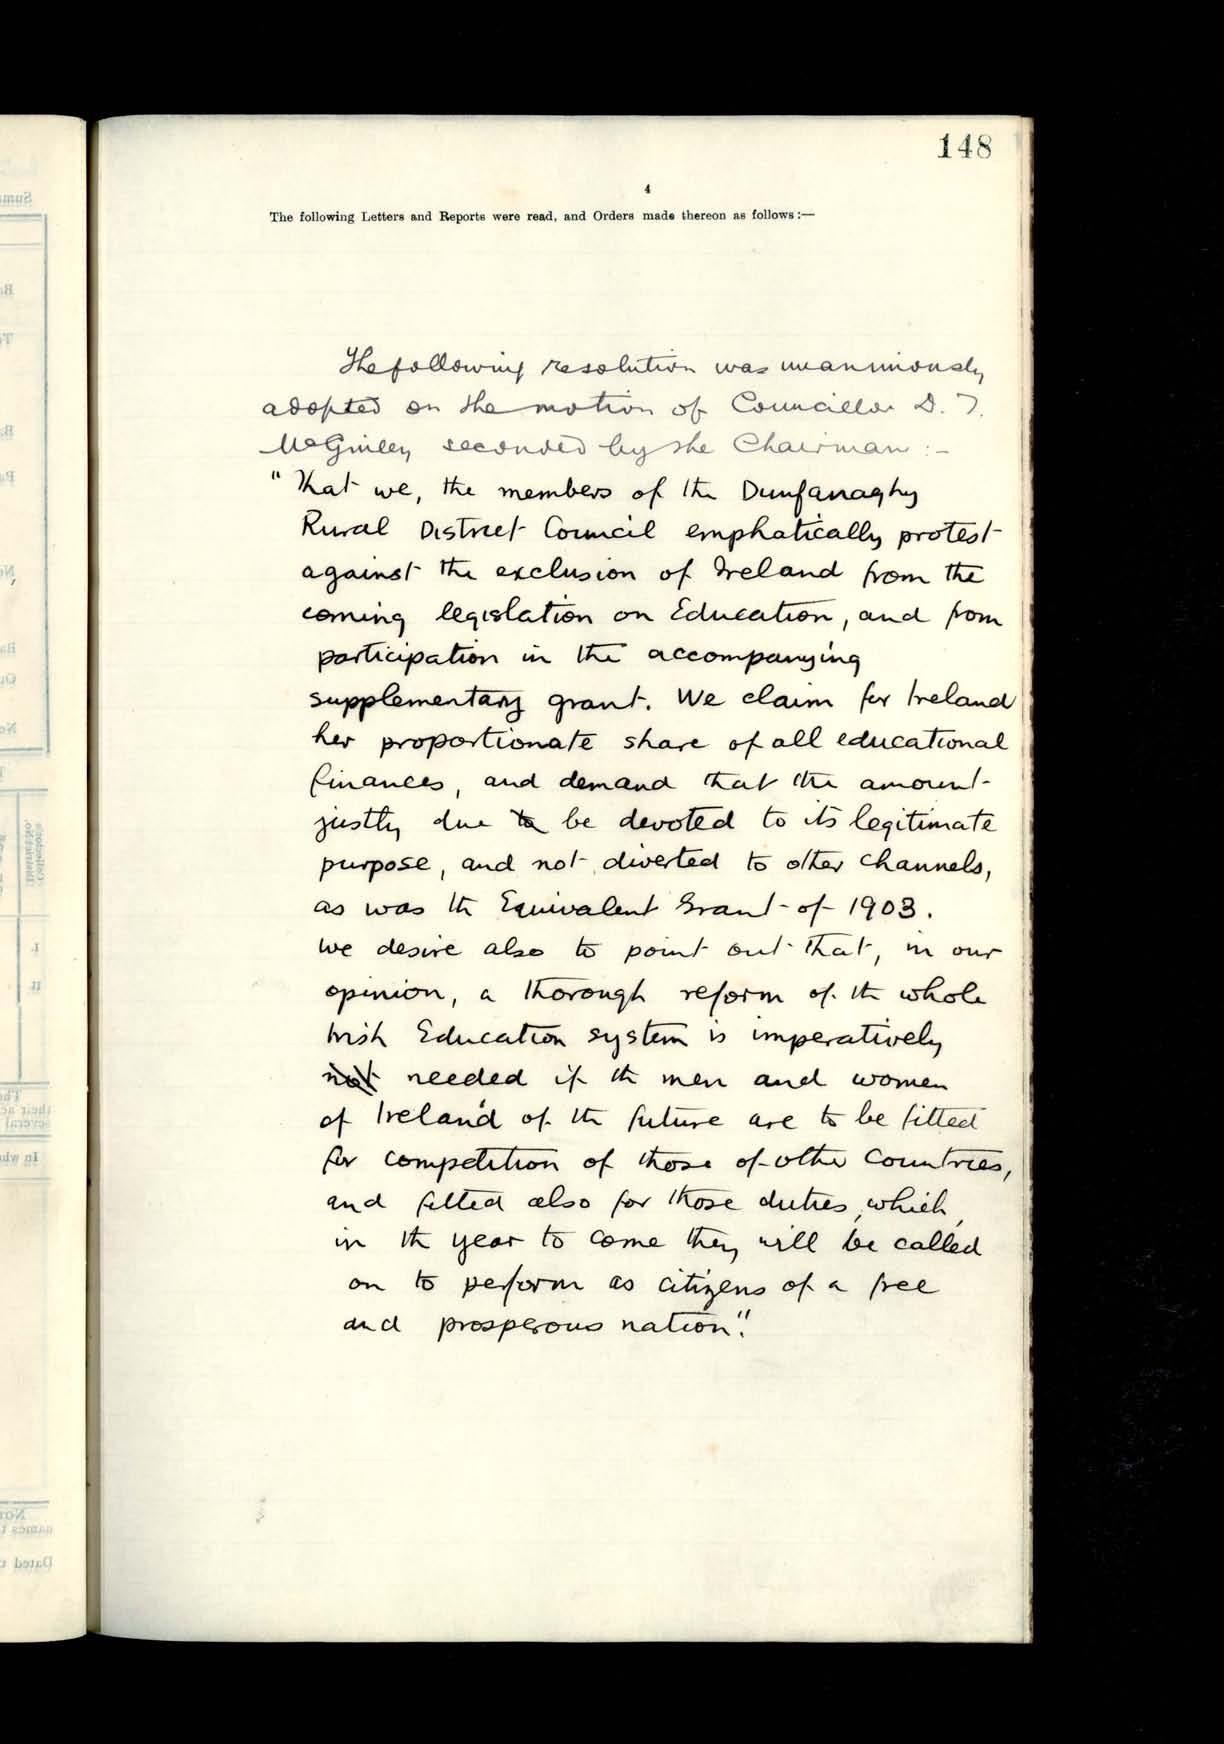 148
4
The following Letters and Reports were read, and Orders made thereon as follows :—
The following resolution was unanimously
adopted on the motion of Councillor D. T.
McGinley seconded by the Chairman :-
"That we, the members of the Dunfanaghy
Rural District Council emphatically protest
against the exclusion of Ireland from the
coming legislation on Education, and from
participation in the accompanying
supplementary grant. We claim for Ireland
her proportionate share of all educational
finances, and demand that the amount
justly due to be devoted to its legitimate
purpose, and not diverted to other channels,
as was th Equivalent Grant of 1903.
We desire also to point out that, in our
opinion, a thorough reform of th whole
Irish Education system is imperatively
not needed if th men and women
of Ireland of th future are to be fitted
for competition of those of other Countries,
and fitted also for those duties, which,
in th year to come they will be called
on to perform as citizens of a free
and prosperous nation".